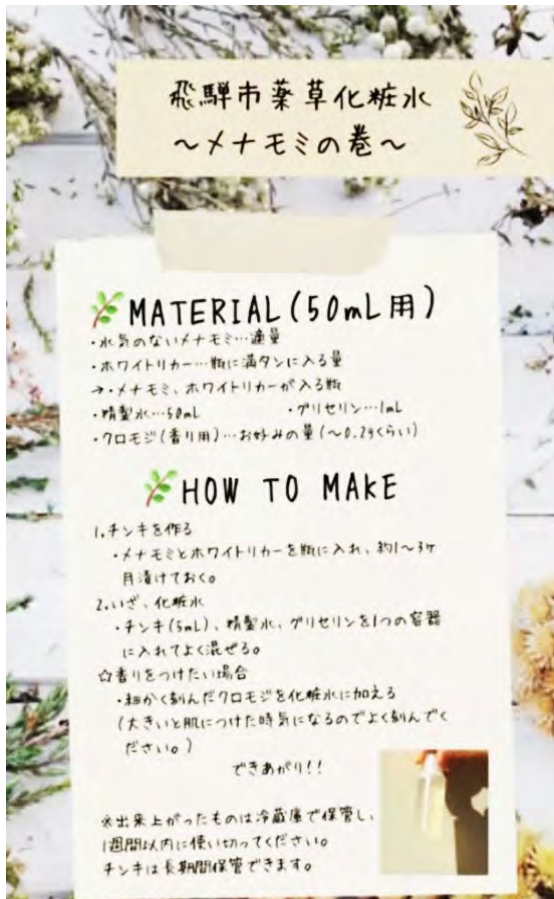 飛騨市薬草化粧水
～メナモミの巻～
MATERIAL(50mL用)
・水気のないメナモミ…適量
・ホワイトリカー…瓶に満タンに入る量
→・メナモミ、ホワイトリカーが入る瓶
・精製水…50mL ・グリセリン…1mL
・クロモジ(香り用)…お好みの量(～0.2gくらい)
HOW TO MAKE
1.チンキを作る
・メナモミとホワイトリカーを瓶に入れ、約1～3ヶ
月漬けておく。
2.いざ、化粧水
・チンキ(5mL)、精製水、グリセリンを1つの容器
に入れてよく混ぜる。
☆香りをつけたい場合
・細かく刻んだクロモジを化粧水に加える
(大きいと肌につけた時気になるのでよく刻んでく
ださい。)
できあがり!!
※出来上がったものは冷蔵庫で保管し、
1週間以内に使い切ってください。
チンキは長期間保管できます。